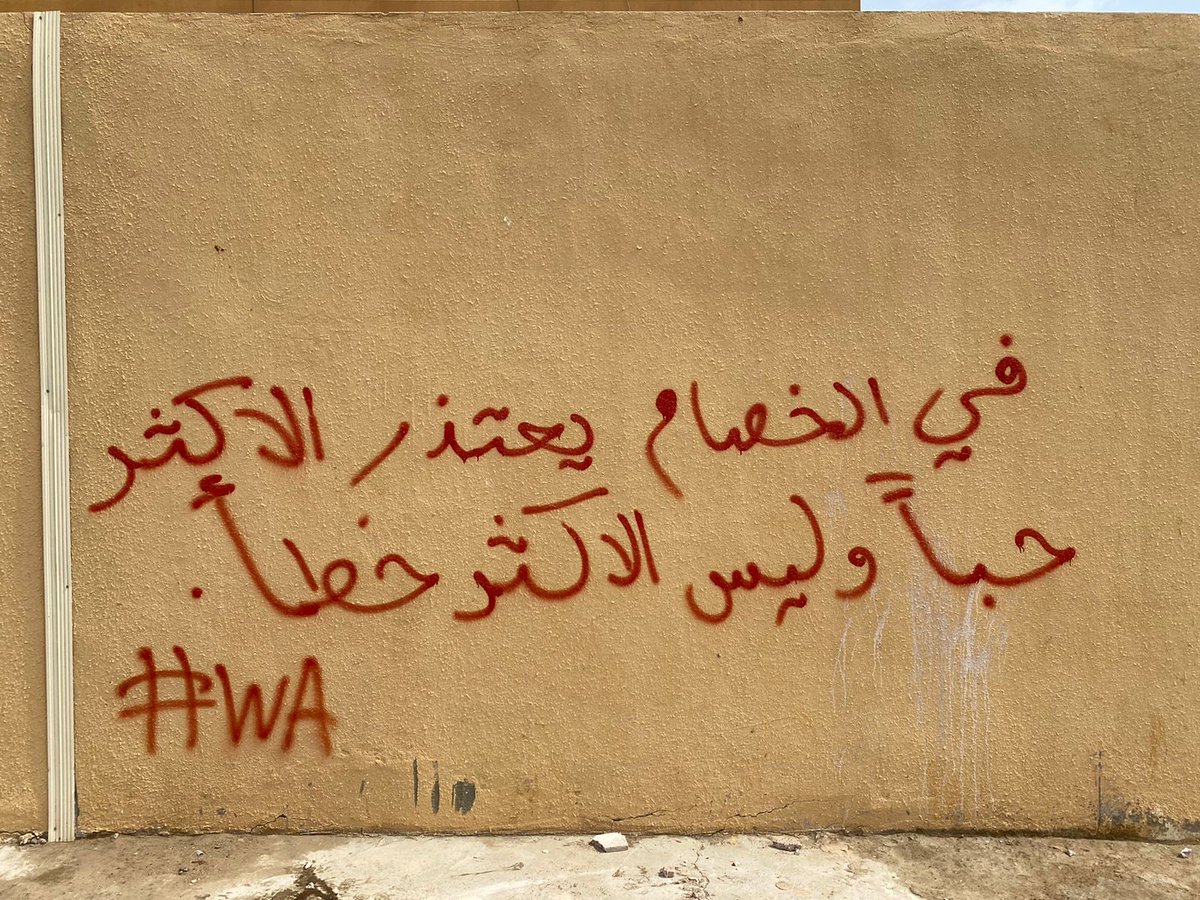 في الخصام يعتذر الاكثر
حباً وليس الاكثر خطأ .
#WA